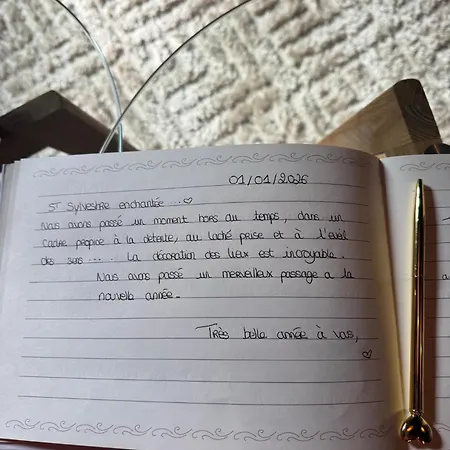 01/01/2026
ST Sylvestre enchantée ... ♡
Nous avons passé un moment hors du temps, dans un
cadre propice à la détente, au laché prise et à l'éveil
des sens ..... La décoration des lieux est incroyable.
Nous avons passé un merveilleux passage a la
nouvelle année.
Très belle année à vous,
♡